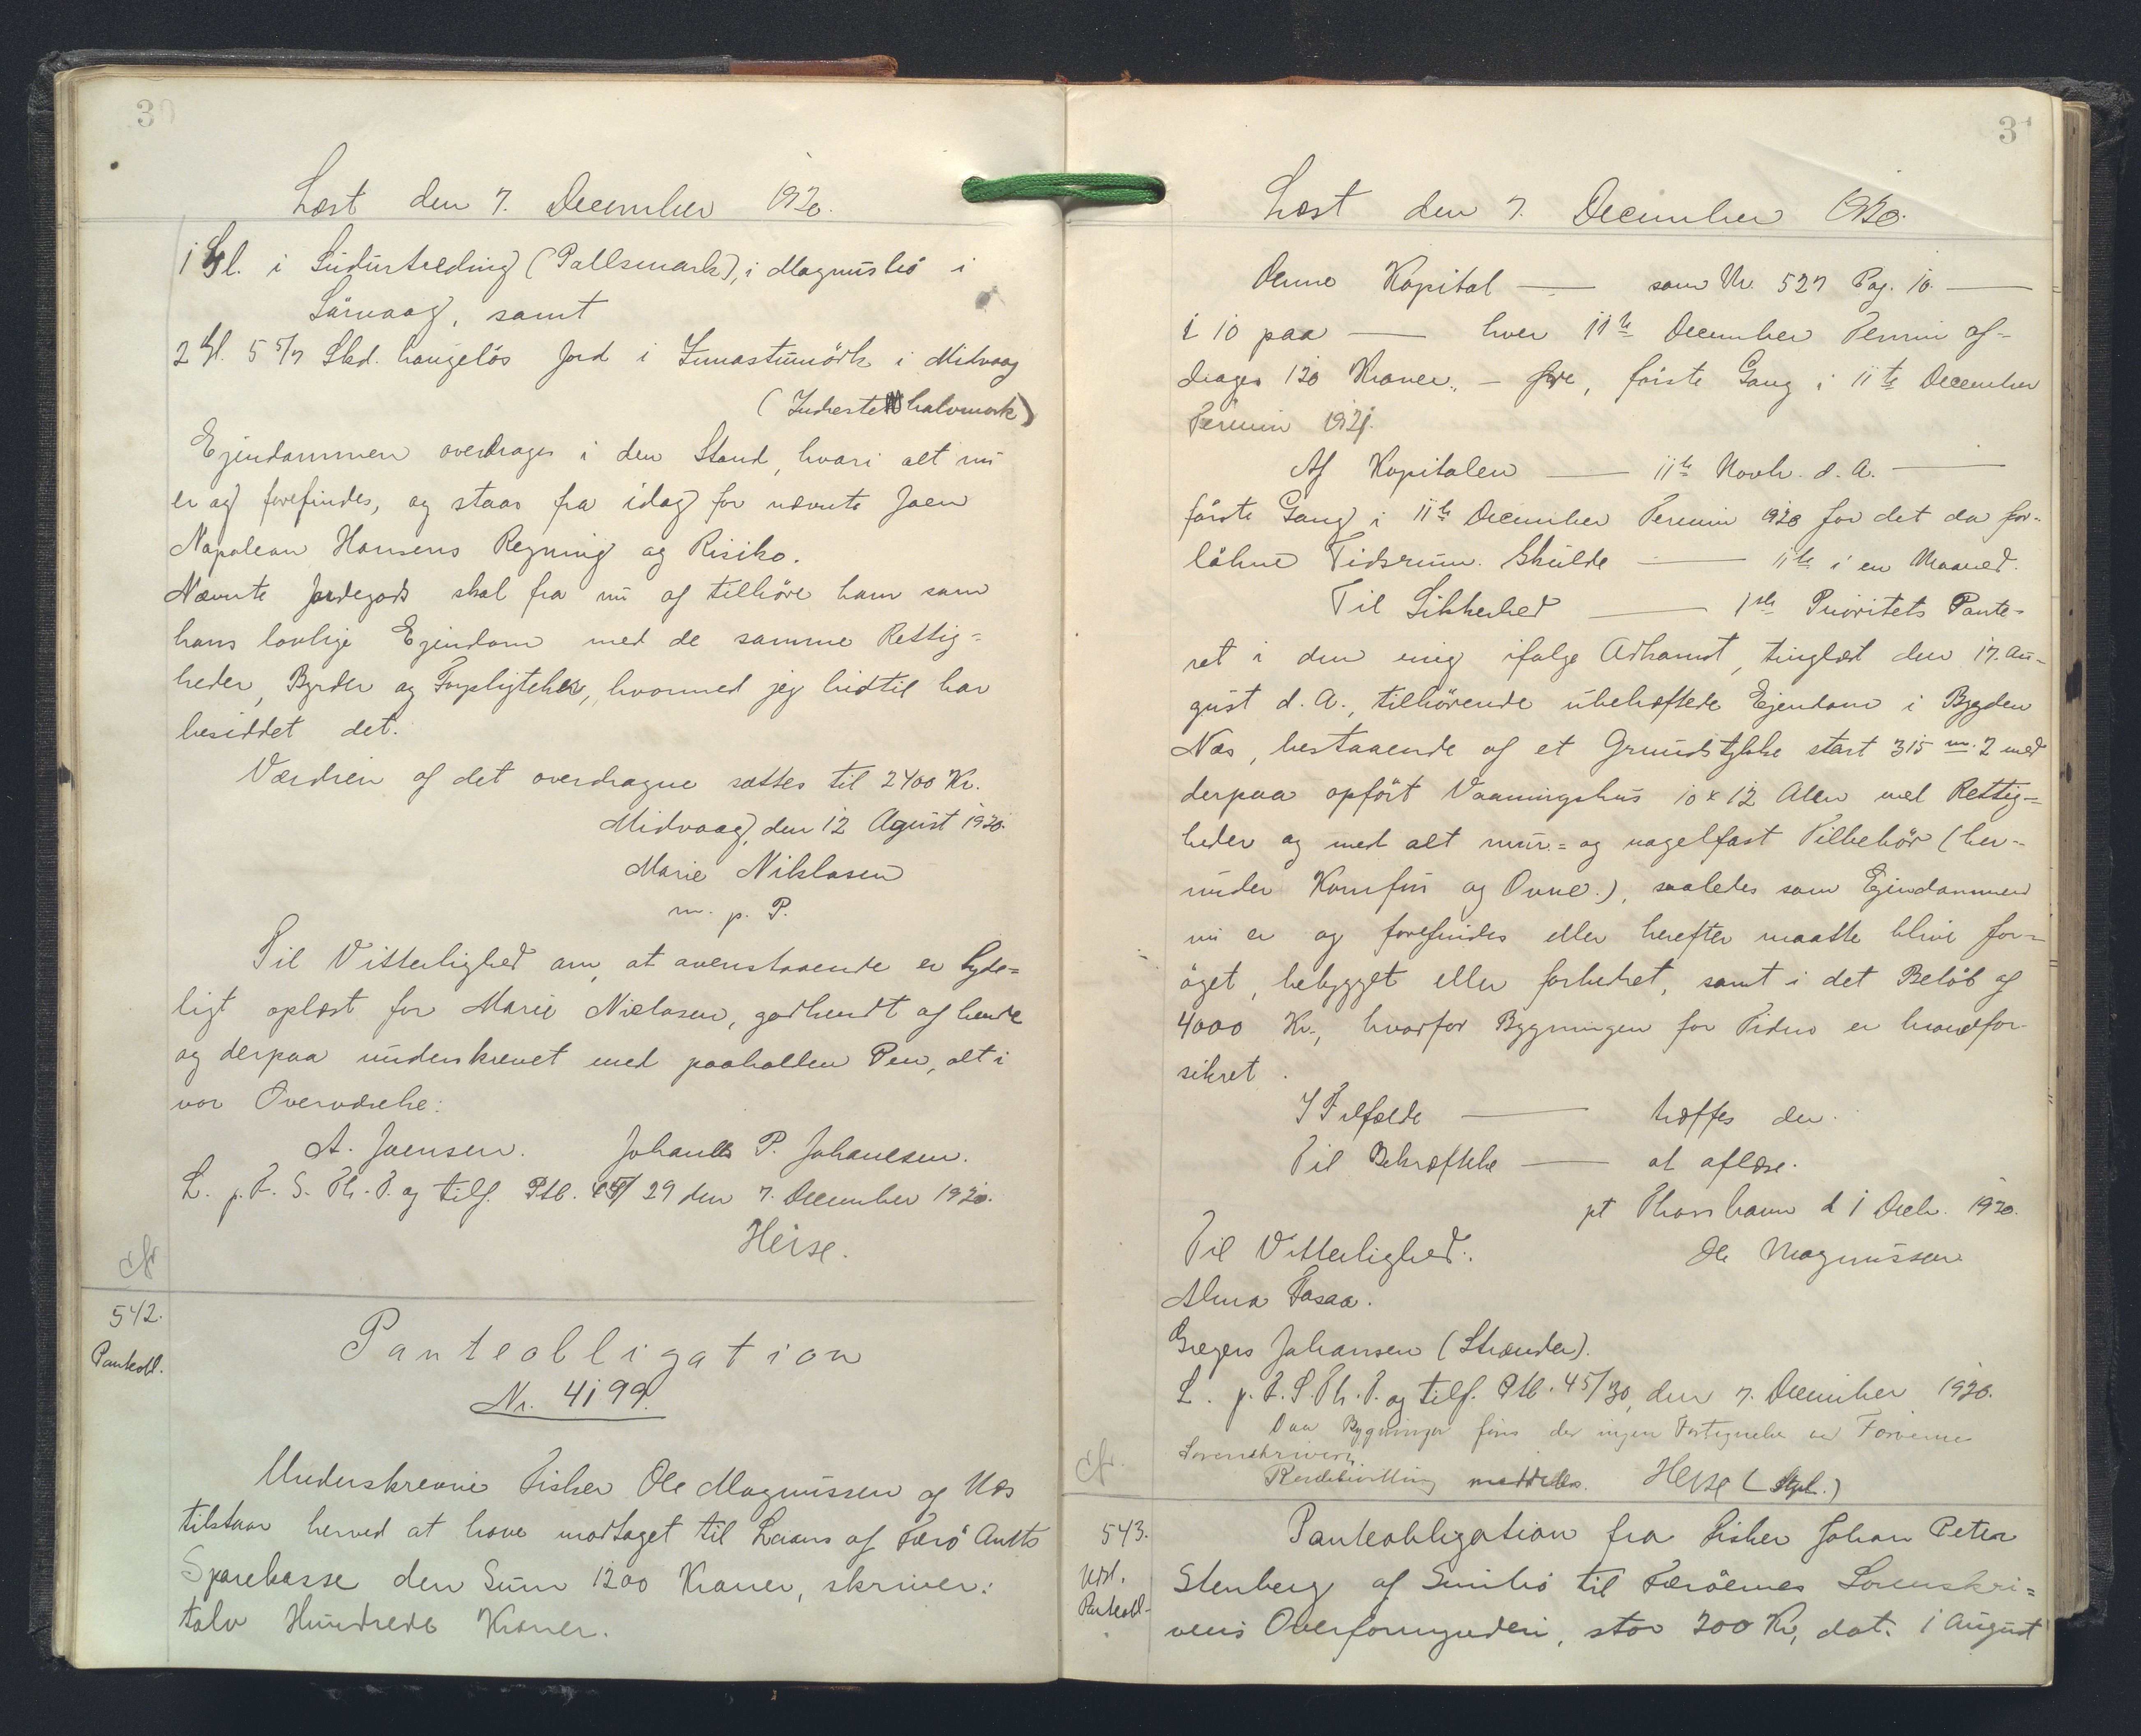 30
Læst den 7. December 1920.
1 Gl. i Sudurtreding (Pallsmark), i Magnusbö i
Sörvaag, samt
2 Gl. 5 5/7 Skd. haugelös Jord i Innastumörk i Midvaag
(Inderste halvmark)
Ejendommen overdrages i den Stand, hvori alt nu
er og forefindes, og staar fra idag for nævnte Joen
Napoleon Hansens Regning og Risiko.
Nævnte Jordegods skal fra nu af tilhöre ham som
hans lovlige Ejendom med de samme Rettig=
heder, Byrder og Forpligtelser, hvormed jeg hidtil har
besiddet det.
Værdien af det overdragne sættes til 2400 Kr.
Midvaag, den 12 August 1920.
Marie Niklasen
m. p. P.
Til Vitterlighed om, at ovenstaaende er tyde=
ligt oplæst for Marie Niclasen, godkendt af hende
og derpaa underskrevet med paaholden Pen, alt i
vor Overværelse:
A. Joensen. Johannes P. Johanesen.
L. p. F. S. Th. P. og tilf. Ptb. 45/29 den 7. December 1920.
Heise.
cfr
542.
Panteobl.
Panteobligation
Nr. 4199.
Underskrevne Fisker Ole Magnussen af Næs
tilstaar herved at have modtaget til Laans af Færö Amts
Sparekasse den Sum 1200 Kroner, skriver:
tolv Hundrede Kroner.
31
Læst den 7. December 1920.
Denne Kapital — som Nr. 527 Pag. 10. —
i 10 paa — hver 11te December Termin af-
drages 120 Kroner. — fore, förste Gang i 11te December
Termin 1921.
Af Kapitalen — 11te Novb. d. A. —
förste Gang i 11te December Termin 1920 for det da for-
löbne Tidsrum. Skulde — 11te i en Maaned.
Til Sikkerhed — 1ste Prioritets Pante-
ret i den mig ifölge Adkomst, tinglæst den 17. Au-
gust d. A., tilhörende ubehæftede Ejendom i Bygden
Næs, bestaaende af et Grundstykke stort 315 m. 2 med
derpaa opfört Vaaningshus 10 x 12 Alen med Rettig=
heder og med alt mur= og nagelfast Tilbehör (her-
under Komfur og Ovne.), saaledes som Ejendommen
nu er og forefindes eller herefter maatte blive for=
öget, bebygget eller forbedret, samt i det Belöb af
4000 Kr., hvorfor Bygningen for Tiden er brandfor-
sikret.
I Tilfælde — træffes der.
Til Bekræftelse — at aflæse.
pt Thorshavn d 1 Decb. 1920.
Til Vitterlighed: Ole Magnussen
Alma Fosaa.
Gregers Johansen (Strænder).
L. p. F. S. Th. P. og tilf. Ptb. 45/30, den 7. December 1920.
Paa Bygninger föres der ingen Fortegnelse ved Færöerne
Sorenskriveri.
meddeles. Heise (Stpl.)
cfr.
543.
Udsl.
Panteobl.
Panteobligation fra Fisker Johan Peter
Stenberg af Sumbö til Færöernes Sorenskri=
veris Overformynderi, stor 200 Kr, dat. 1 August